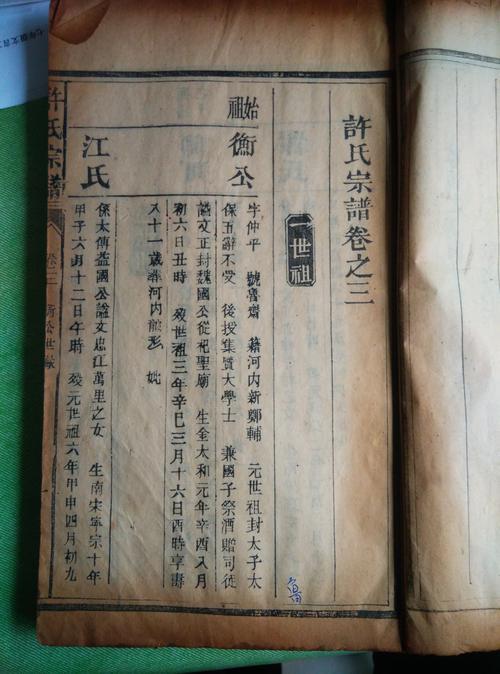 許氏宗譜卷之三
一世祖
始祖
衡公
字仲平 號魯齋 籍河內新鄭輔 元世祖封太子太
保五辭不受 後授集賢大學士 兼國子祭酒贈司徒
謚文正封魏國公從祀聖廟 生金太和元年辛酉八月
初六日丑時 歿世祖三年辛巳三月十六日酉時享壽
八十一歲葬河內 形 妣
江氏
係太傅益國公謚文忠江萬里之女 生南宋寧宗十年
甲子六月十二日午時 歿元世祖六年甲申四月初九
許氏宗譜
卷之三
衡公世錄
魯
七年级文言